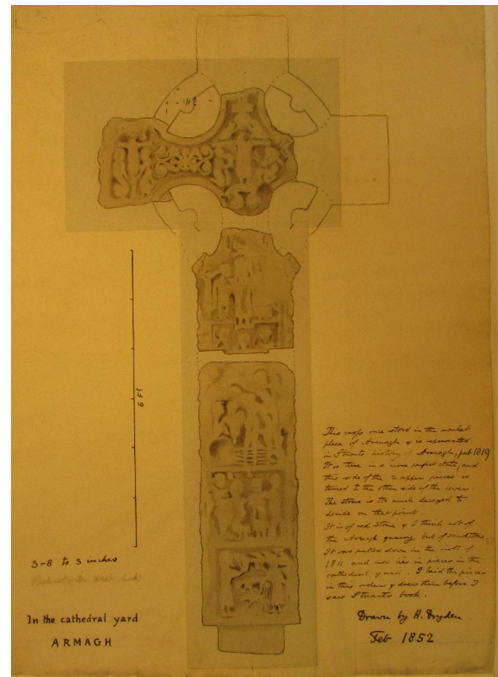 6 Ft
This cross once stood in the market
place of Armagh & is represented
in Stuarts history of Armagh, pub 1819
It is there in a more perfect state, and
this side of the 2 upper pieces is
turned to the other side of the lower.
The stone is too much decayed to
decide on that point.
It is of red stone & I think not of
the Armagh quarry but of sandstone.
It was pulled down in the
and now lies in pieces in the
cathedral yard. I laid the pieces
in this order & drew them before I
saw Stuarts book.
3-8 to 3 inches
In the cathedral yard
ARMAGH
Drawn by H. Dryden
Feb 1852